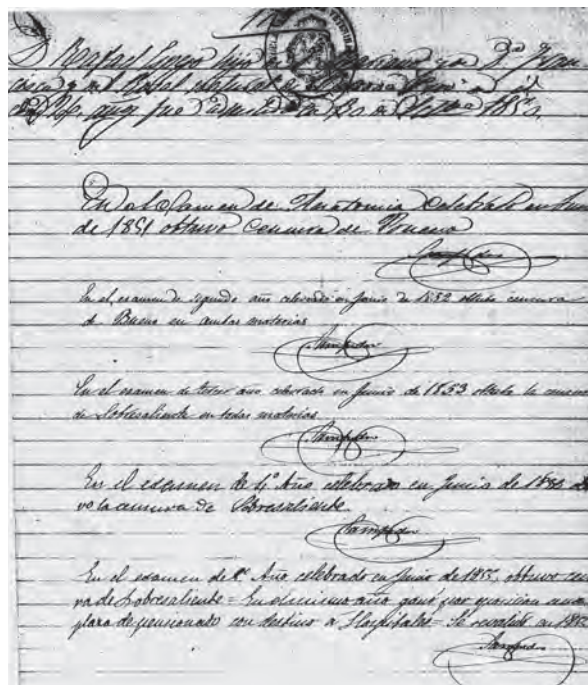 D. Rafael hijo de D. Mariano y de Dª Fran
cisca y natural de
de 24 años fue admitido en 20 de 1850.
En el Examen de Anatomia celebrado en Junio
de 1851 obtuvo Censura de Bueno
Sampedro
En el examen de segundo año celebrado en Junio de 1852 obtubo censura
de Bueno en ambas materias
Sampedro
En el examen de tercer año celebrado en Junio de 1853 obtubo la censura
de Sobresaliente en todas materias
Sampedro
En el examen de 4º Año celebrado en Junio de 1854
vo la censura de Sobresaliente
Sampedro
En el examen de Año celebrado en Junio de 1855, obtuvo cen
ra de Sobresaliente = En el mismo año ganó por oposicion una
plaza de pensionado con destino a Hospitales = Se revalidó en
Sampedro